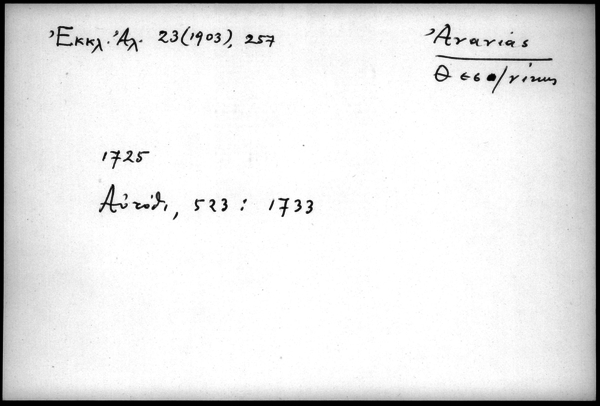 Ἐκκλ. Ἀλ. 23(1903), 257
Ἀνανίας
Θεσσ/νίκης
1725
Αὐτόθι, 523 : 1733